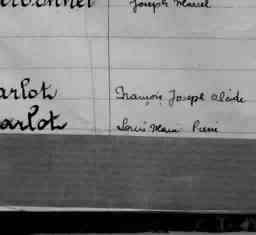 Joseph Marcel
arlot François Joseph Alcide
arlot Louis Marie Pierre